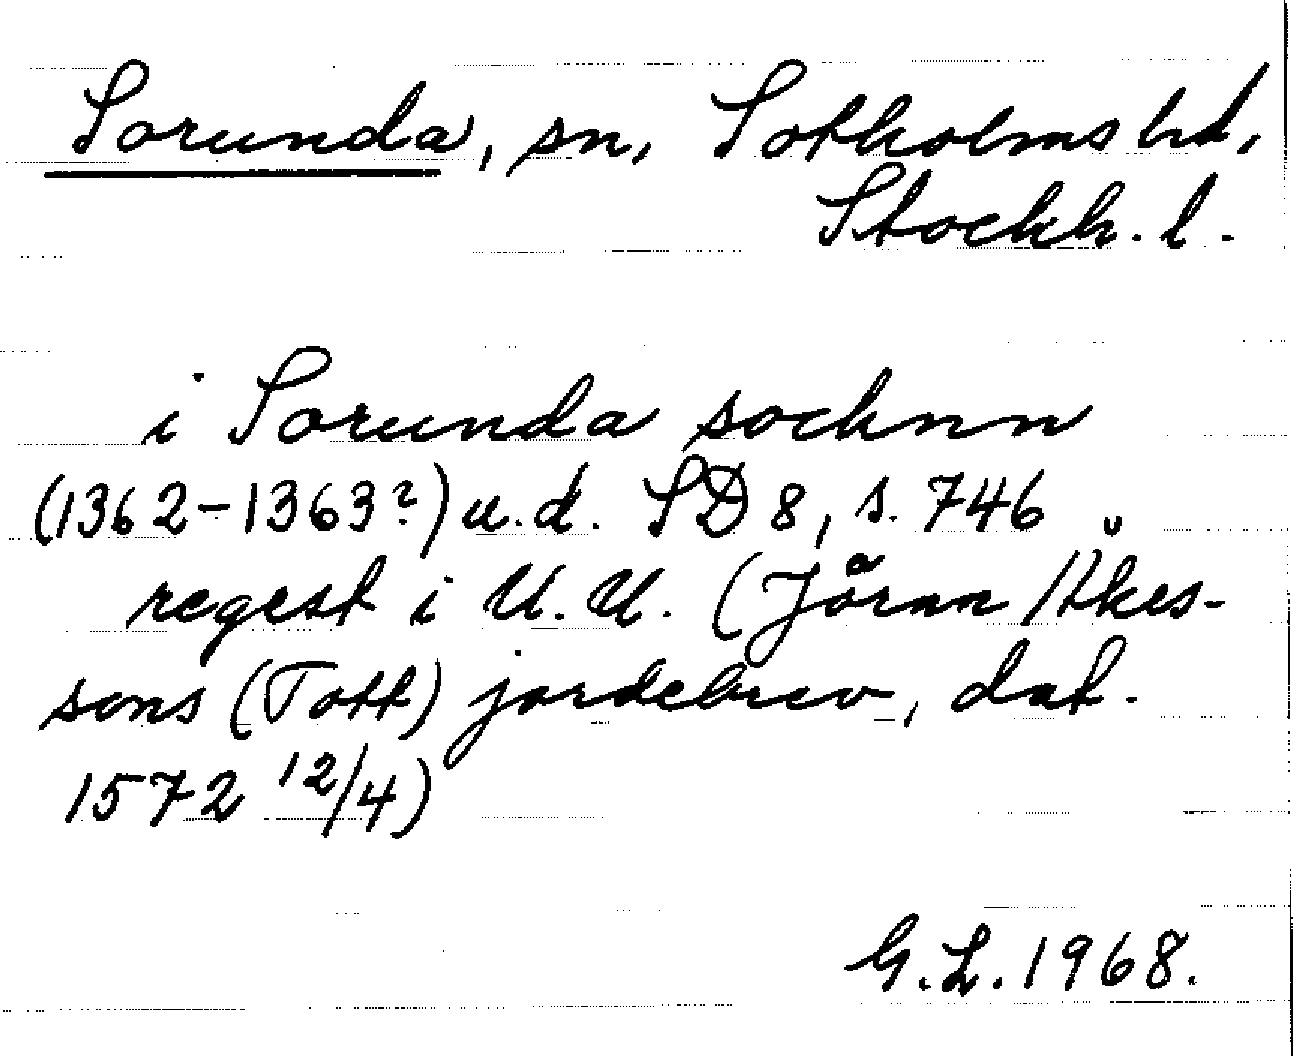 Sorunda, sn, Sotholms hd,
Stockh. l.
i Sorunda socknn
(1362-1363?) u.d. SD 8, s. 746
regest i U.U. (Jöran Åkes-
sons (Tott) jordebrev, dat.
1572 12/4)
G.L. 1968.